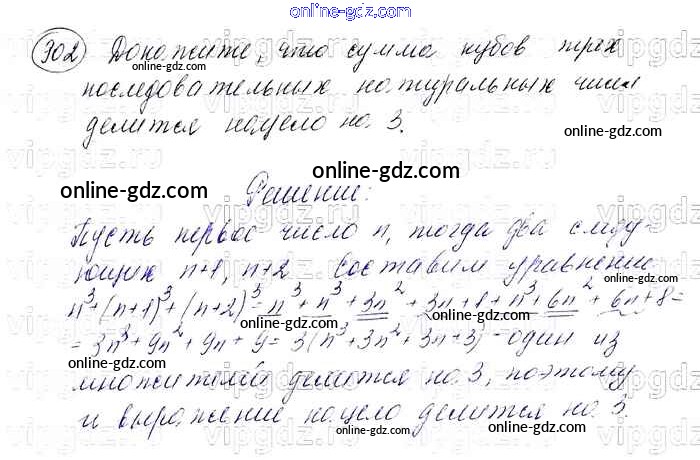 online-gdz.com
302 Докажите, что сумма кубов трех
online-gdz.com
последовательных натуральных чисел
online-gdz.com
делится нацело на 3.
online-gdz.com
online-gdz.com
online-gdz.com
Решение:
Пусть первое число n, тогда два следу-
ющих n+1, n+2 Составим уравнение
online-gdz.com
n³+(n+1)³+(n+2)³=n³+n³+3n²+3n+1+n³+6n²+6n+8=
online-gdz.com
= 3n³+9n²+9n+9=3(n³+3n²+3n+3) - один из
online-gdz.com
множителей делится на 3, поэтому
online-gdz.com
и выражение нацело делится на 3.
online-gdz.com
online-gdz.com